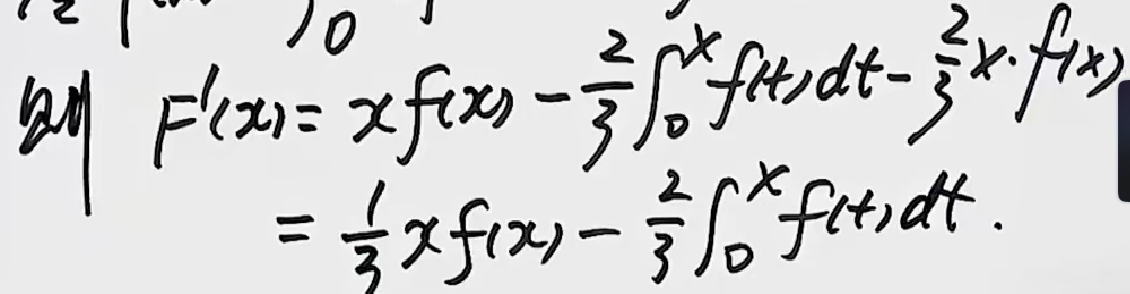 则 F'(x) = x f(x) - \frac{2}{3} \int_0^x f(t) dt - \frac{2}{3} x \cdot f(x)
= \frac{1}{3} x f(x) - \frac{2}{3} \int_0^x f(t) dt .